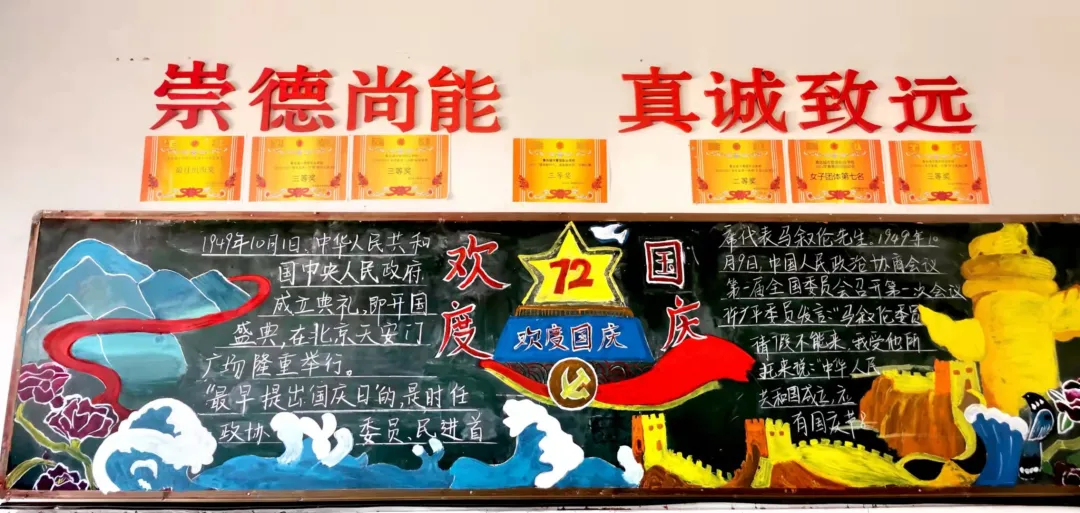 崇德尚能 真诚致远
三等奖
三等奖
三等奖
二等奖
女子团体第七名
三等奖
欢度
国庆
72
欢度国庆
1949年10月1日,中华人民共和
国中央人民政府
成立典礼,即开国
盛典,在北京天安门
广场隆重举行。
"最早提出'国庆日'的,是时任
政协 委员、民进首
席代表马叙伦先生。1949年10
月9日,中国人民政治协商会议
第一届全国委员会召开第一次会议
许广平委员发言:"马叙伦委员
请假不能来,我受他所
托来说:"中华人民
共和国成立,应
有国庆节